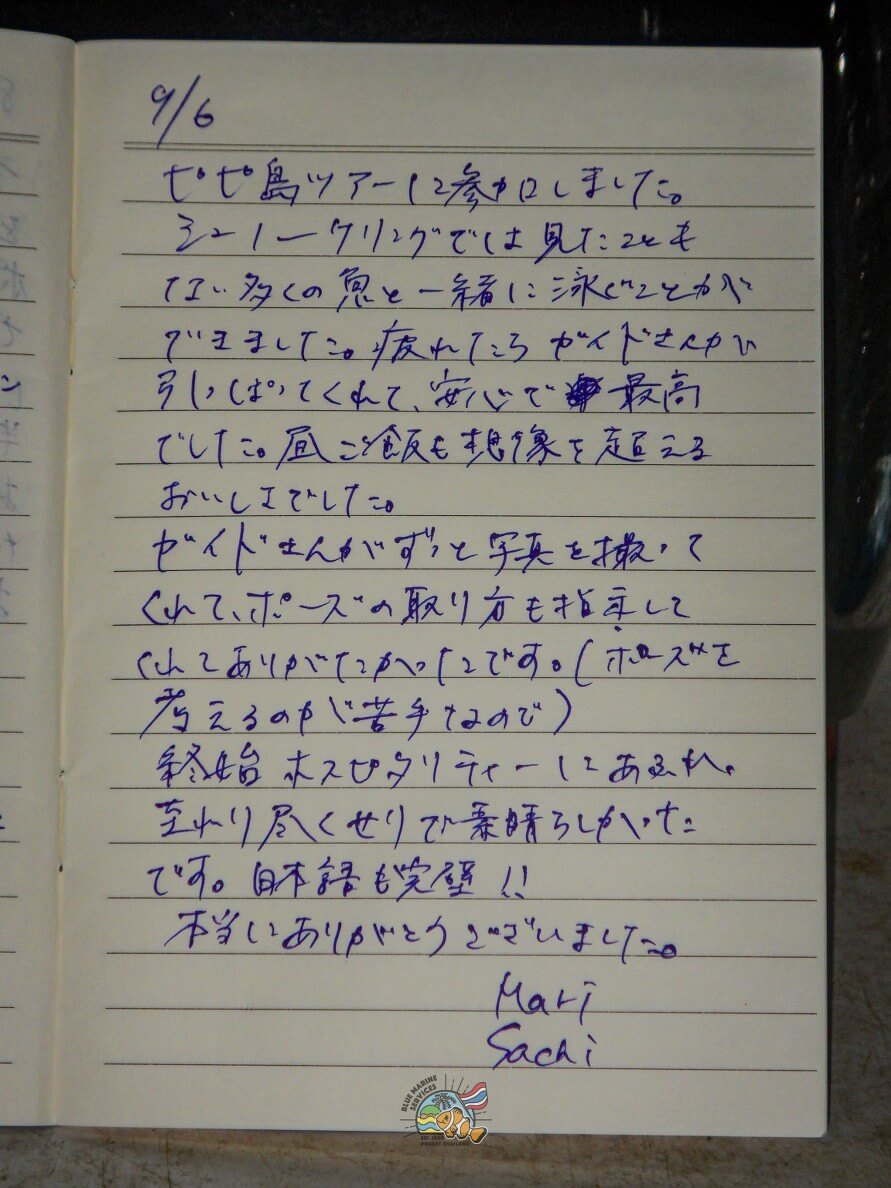 9/6
ピピ島ツアーに参加しました。
シューノーケリングでは見たことも
ない多くの魚と一緒に泳ぐことが
できました。疲れたらガイドさんが
引っぱってくれて、安心で最高
でした。昼ご飯も想像を超える
おいしさでした。
ガイドさんがずっと写真を撮って
くれて、ポーズの取り方も指示して
くれてありがたかったです。(ポーズを
考えるのが苦手なので)
終始ホスピタリティーにあふれ、
至れり尽くせりで素晴らしかった
です。日本語も完璧!!
本当にありがとうございました。
Mari
Sachi
BLUE MARINE SERVICES
PHUKET THAILAND